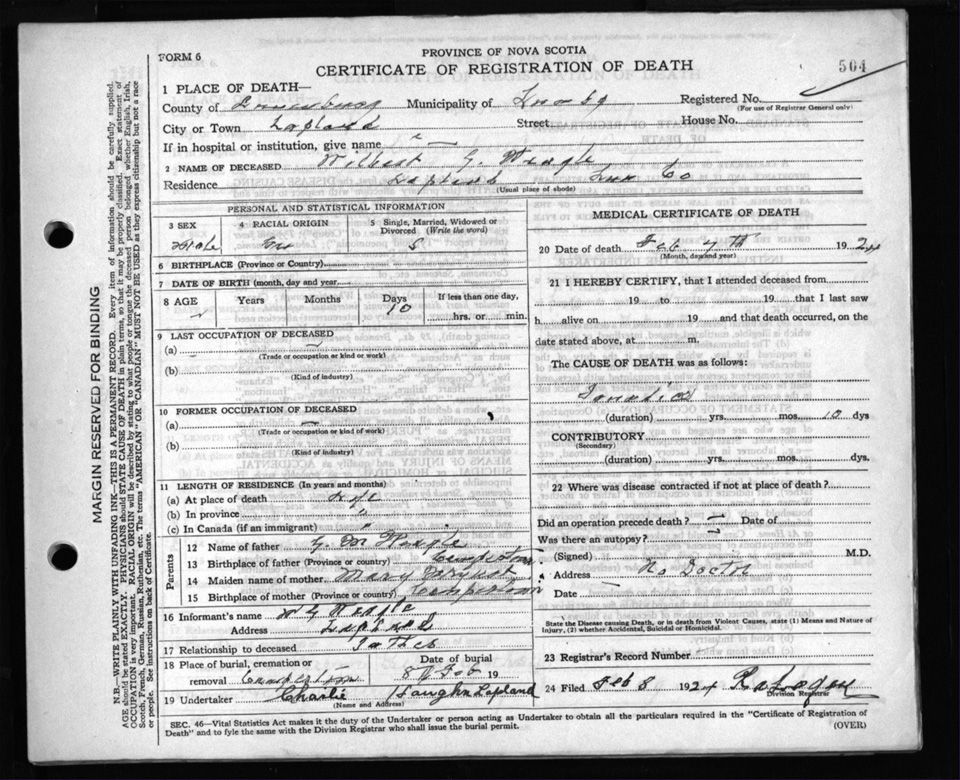 FORM 6
PROVINCE OF NOVA SCOTIA
CERTIFICATE OF REGISTRATION OF DEATH
504
1 PLACE OF DEATH—
County of Lunenburg Municipality of Registered No.
(For use of Registrar General only)
City or Town Lapland Street House No.
If in hospital or institution, give name
2 NAME OF DECEASED Wilbert G. Weagle
Residence Lapland Lun Co
(Usual place of abode)
PERSONAL AND STATISTICAL INFORMATION
3 SEX 4 RACIAL ORIGIN 5 Single, Married, Widowed or Divorced (Write the word)
Male S
6 BIRTHPLACE (Province or Country)
7 DATE OF BIRTH (month, day and year)
8 AGE Years Months Days If less than one day,
10 hrs. or min.
9 LAST OCCUPATION OF DECEASED
(a)
(Trade or occupation or kind or work)
(b)
(Kind of industry)
10 FORMER OCCUPATION OF DECEASED
(a)
(Trade or occupation or kind of work)
(b)
(Kind of industry)
11 LENGTH OF RESIDENCE (In years and months)
(a) At place of death Life
(b) In province "
(c) In Canada (if an immigrant) "
Parents
12 Name of father G. M Weagle
13 Birthplace of father (Province or country)
14 Maiden name of mother Mary
15 Birthplace of mother (Province or country)
16 Informant's name Weagle
Address Lapland
17 Relationship to deceased Father
18 Place of burial, cremation or removal
Date of burial
8 Feb 19
19 Undertaker Charlie Vaughn Lapland
(Name and Address)
MEDICAL CERTIFICATE OF DEATH
20 Date of death Feb 7th 1924
(Month, day and year)
21 I HEREBY CERTIFY, that I attended deceased from
19 to 19 that I last saw
h alive on 19 and that death occurred, on
date stated above, at m.
The CAUSE OF DEATH was as follows:
Jaundice
(duration) yrs. mos. 10 dys
CONTRIBUTORY
(Secondary)
(duration) yrs. mos. dys.
22 Where was disease contracted if not at place of death?
Did an operation precede death? Date of
Was there an autopsy?
(Signed) M.D.
Address No Doctor
Date
State the Disease causing Death, or in death from Violent Causes, state (1) Means and Nature of
Injury, (2) whether Accidental, Suicidal or Homicidal.
23 Registrar's Record Number
24 Filed Feb 8 1924
Division Registrar
SEC. 46—Vital Statistics Act makes it the duty of the Undertaker or person acting as Undertaker to obtain all the particulars required in the "Certificate of Registration of
Death" and to fyle the same with the Division Registrar who shall issue the burial permit.
(OVER)
MARGIN RESERVED FOR BINDING
N.B.—WRITE PLAINLY WITH UNFADING INK—THIS IS A PERMANENT RECORD. Every item of information should be carefully supplied.
AGE should be stated EXACTLY. PHYSICIANS should STATE CAUSE OF DEATH in plain terms, so that it may be properly classified. Exact statement of
OCCUPATION is very important. RACIAL ORIGIN will be described by stating to what people or tongue the deceased person belonged whether English, Irish,
Scotch, French, German, Russian, Ruthenian, etc. The terms "AMERICAN" OR "CANADIAN" MUST NOT BE USED as they express citizenship but not a race
or people. See instructions on back of Certificate.